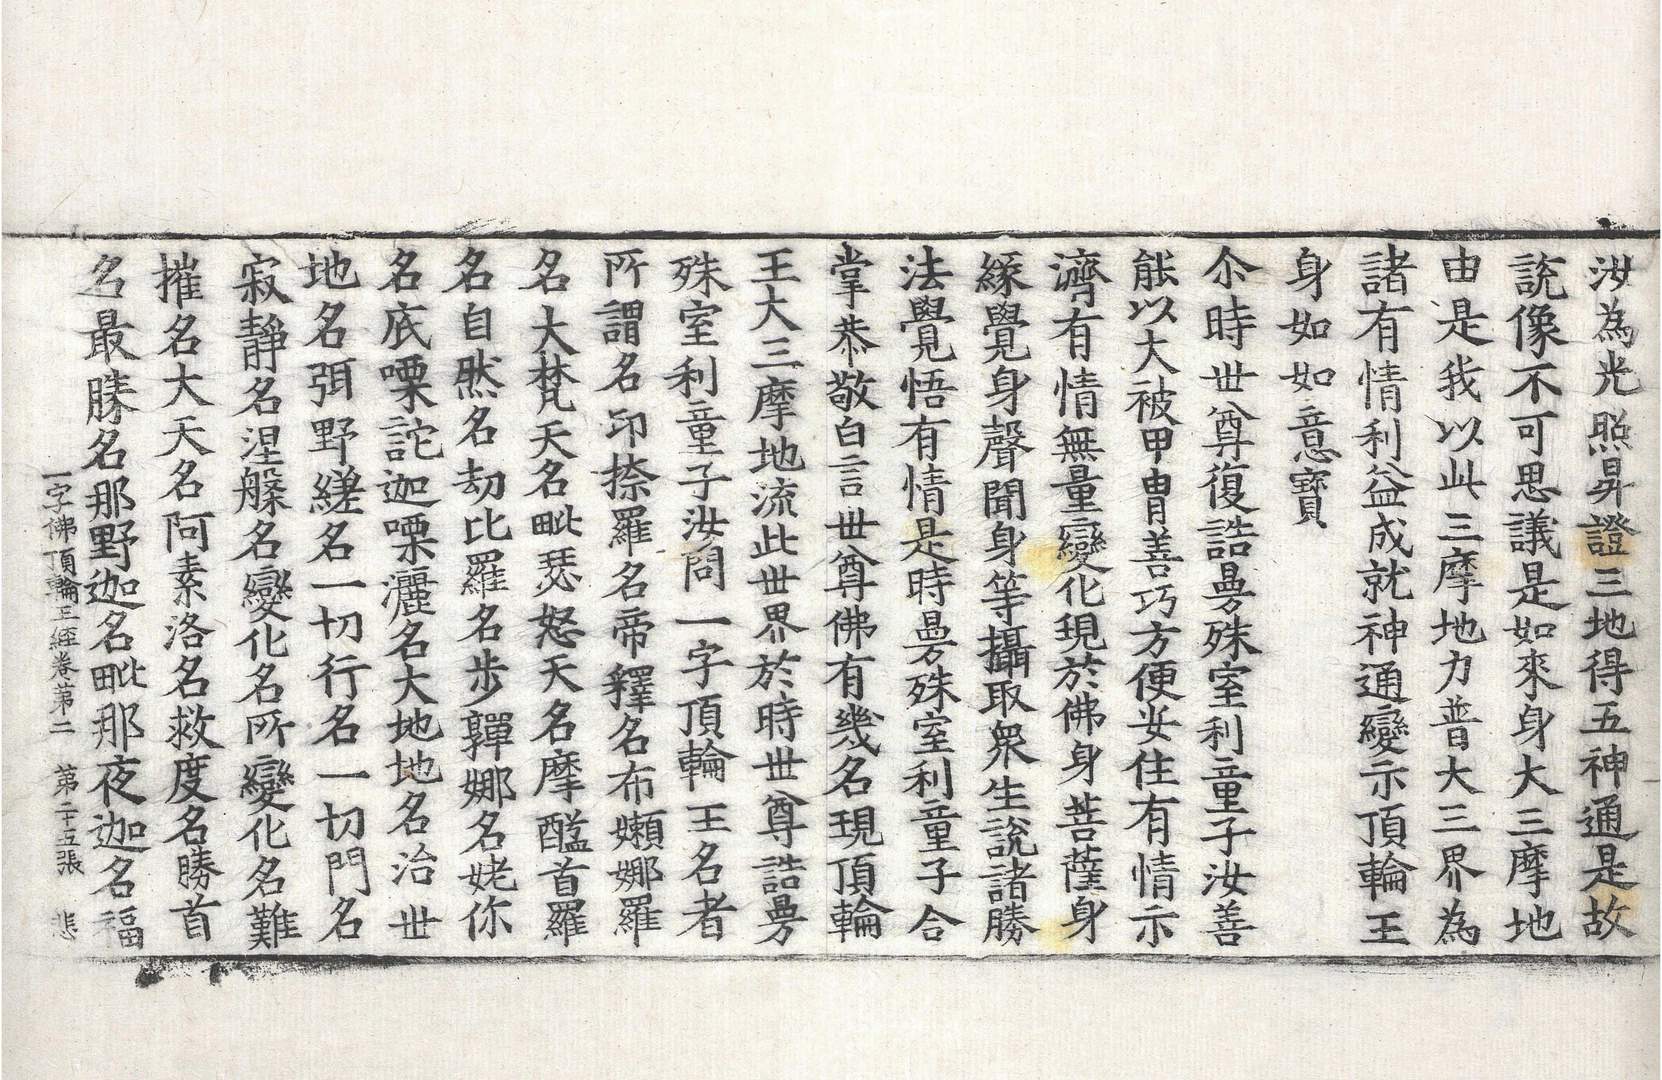 汝為光照昇證三地得五神通是故
說像不可思議是如來身大三摩地
由是我以此三摩地力普大三界為
諸有情利益成就神通變示頂輪王
身如如意寶
尒時世尊復誥曼殊室利童子汝善
能以大被甲冑善巧方便安住有情示
濟有情無量變化現於佛身菩薩身
緣覺身聲聞身等攝取衆生說諸勝
法覺悟有情是時曼殊室利童子合
掌恭敬白言世尊佛有幾名現頂輪
王大三摩地流此世界於時世尊誥曼
殊室利童子汝問一字頂輪王名者
所謂名印捺羅名帝釋名布嬾娜羅
名大梵天名毗瑟怒天名摩醯首羅
名自然名劫比羅名步嚲娜名姥你
名底嘌詫迦嘌灑名大地地名治世
地名弭野縒名一切行名一切門名
寂靜名涅槃名變化名所變化名難
摧名大天名阿素洛名救度名勝首
名最勝名那野迦名毗那夜迦名福
一字佛頂輪王經卷第二　第二十五張　悲